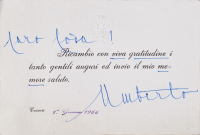 Caro Sora !
Ricambio con viva gratitudine i
tanto gentili auguri ed invio il mio me-
more saluto.
Umberto